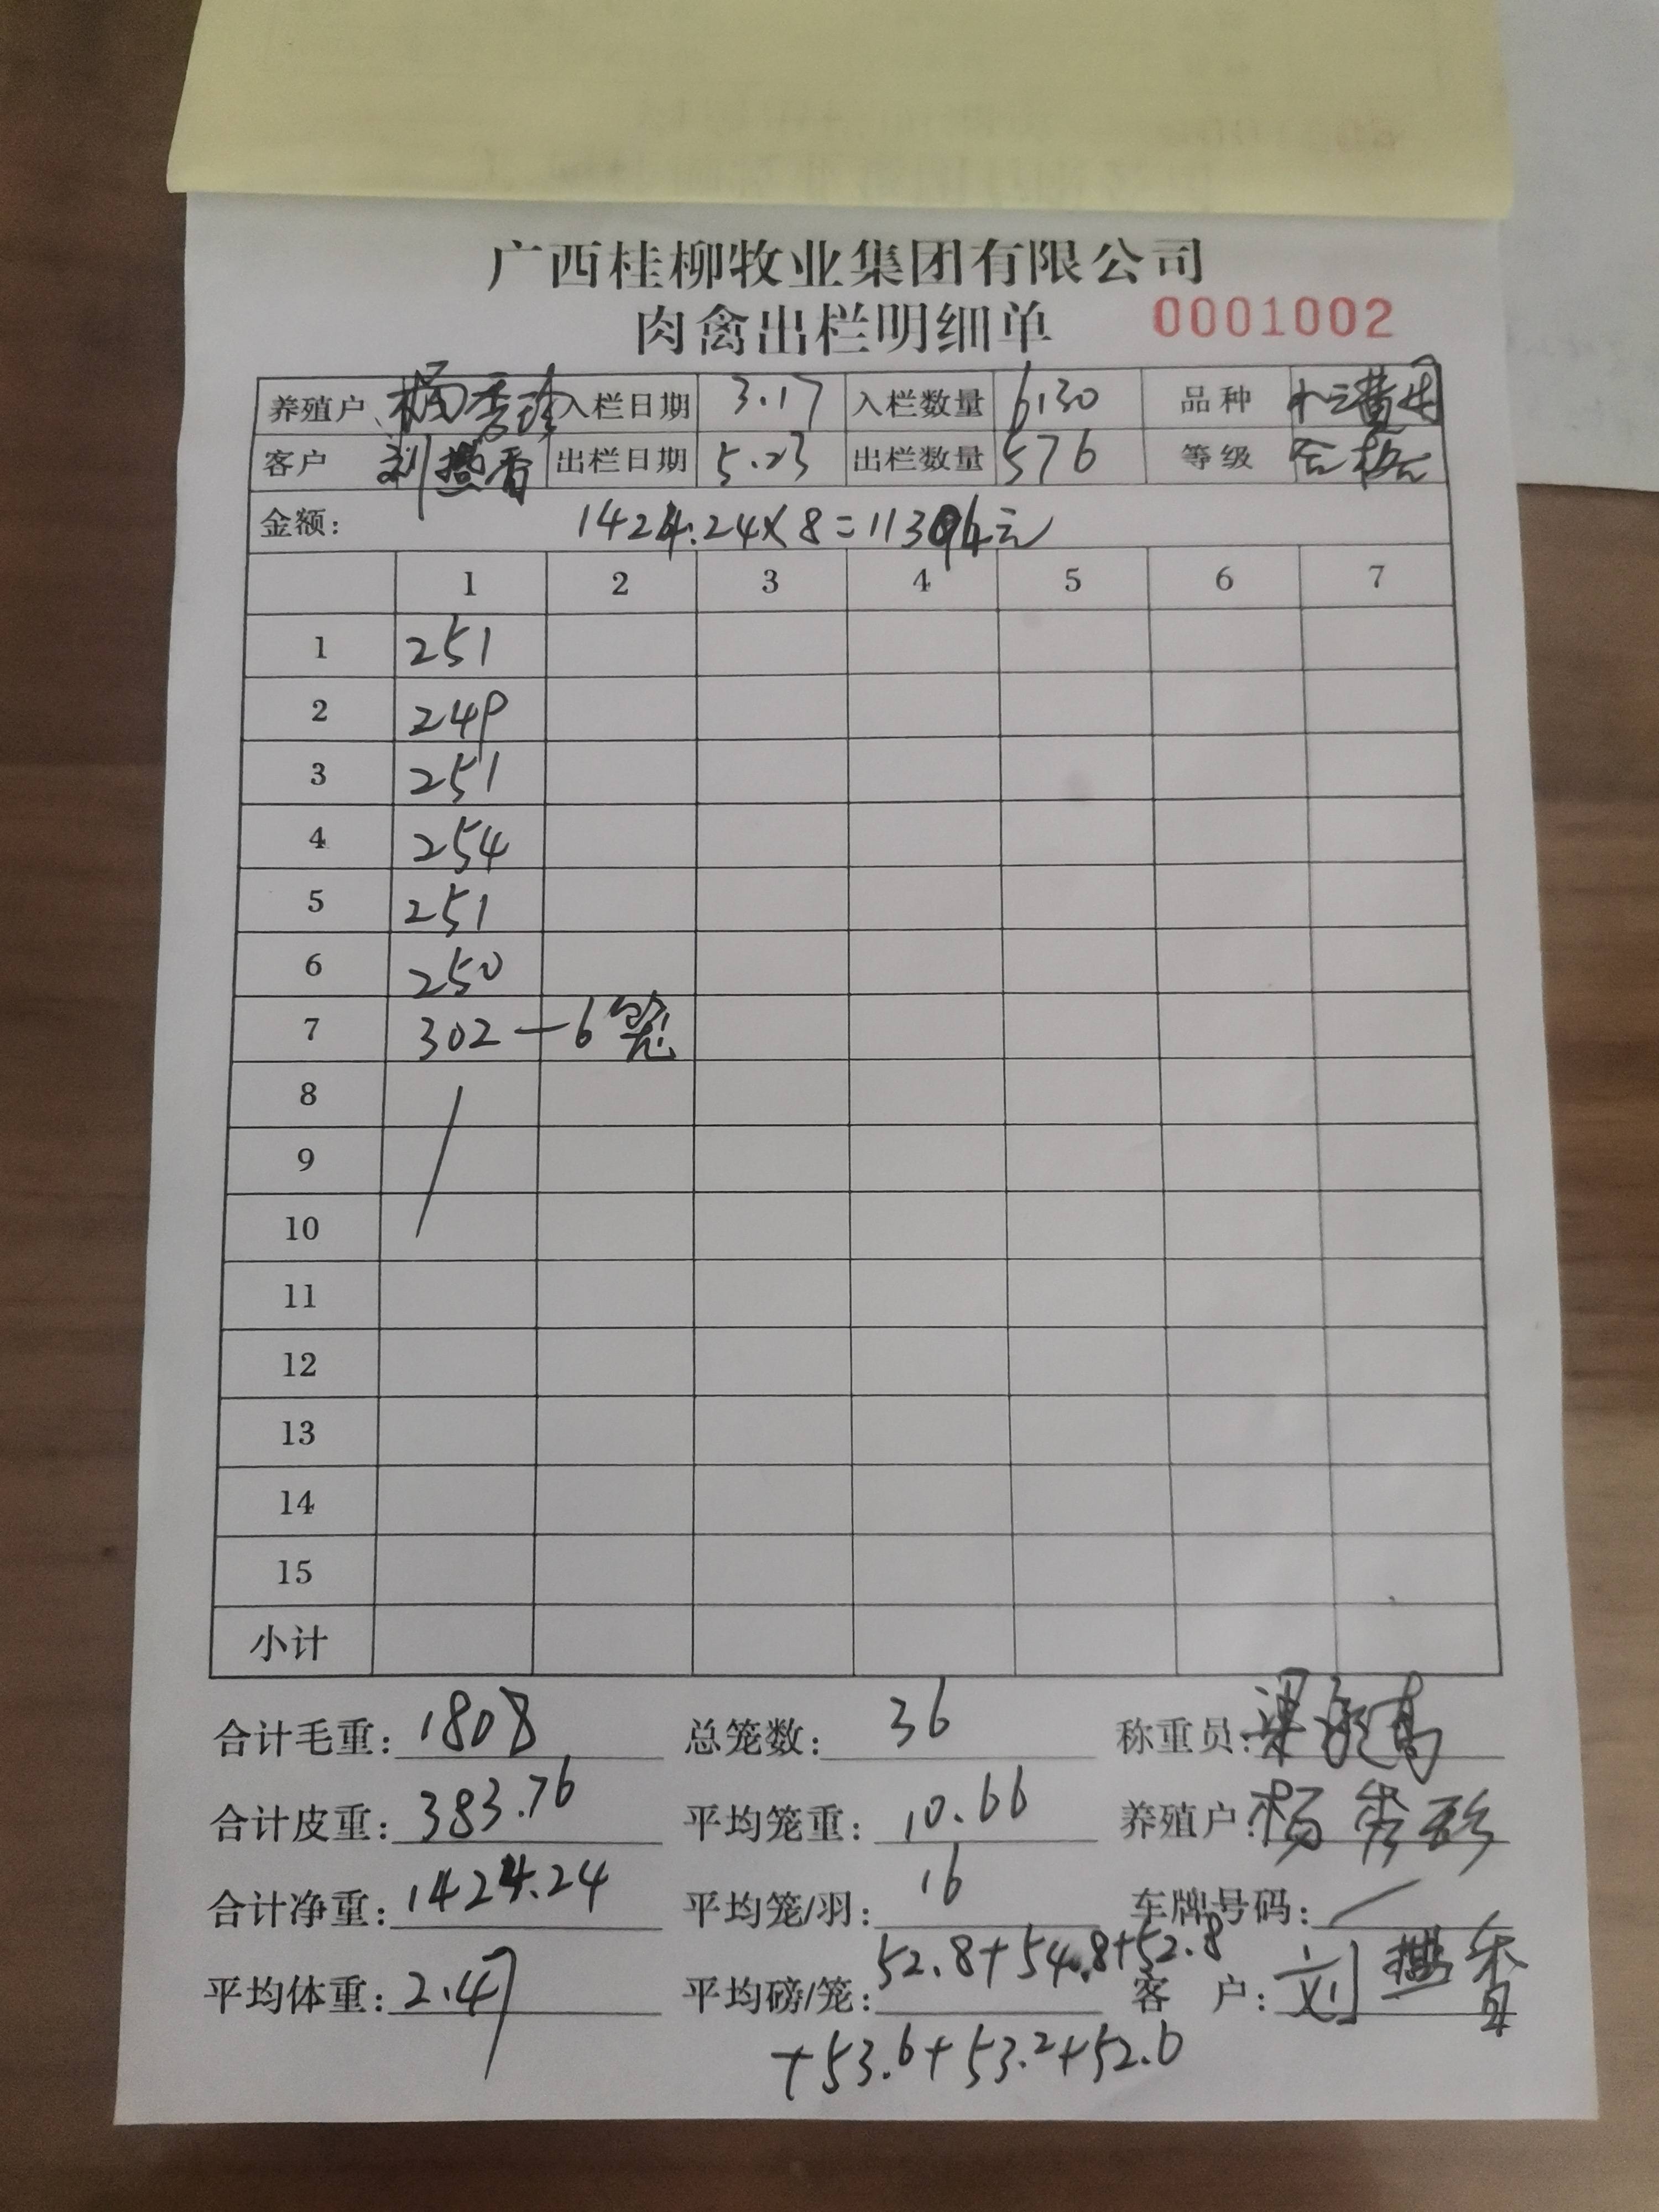 广西桂柳牧业集团有限公司
肉禽出栏明细单 0001002
养殖户 杨秀珍 入栏日期 3.17 入栏数量 6130 品种
客户 刘燕香 出栏日期 5.23 出栏数量 576 等级 合格
金额: 1424.24×8=11394元
1 2 3 4 5 6 7
1 251
2 249
3 251
4 254
5 251
6 250
7 302—6笼
8
9
10
11
12
13
14
15
小计
合计毛重: 1808 总笼数: 36 称重员:
合计皮重: 383.76 平均笼重: 10.66 养殖户: 杨秀珍
合计净重: 1424.24 平均笼/羽: 16 车牌号码: /
平均体重: 2.47 平均磅/笼: 52.8+54.8+52.8 客 户: 刘燕香
+53.6+53.2+52.6